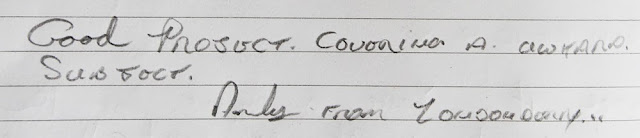 Good Product. Covering A. awkard.
Subject.
Andy From Londonderry...